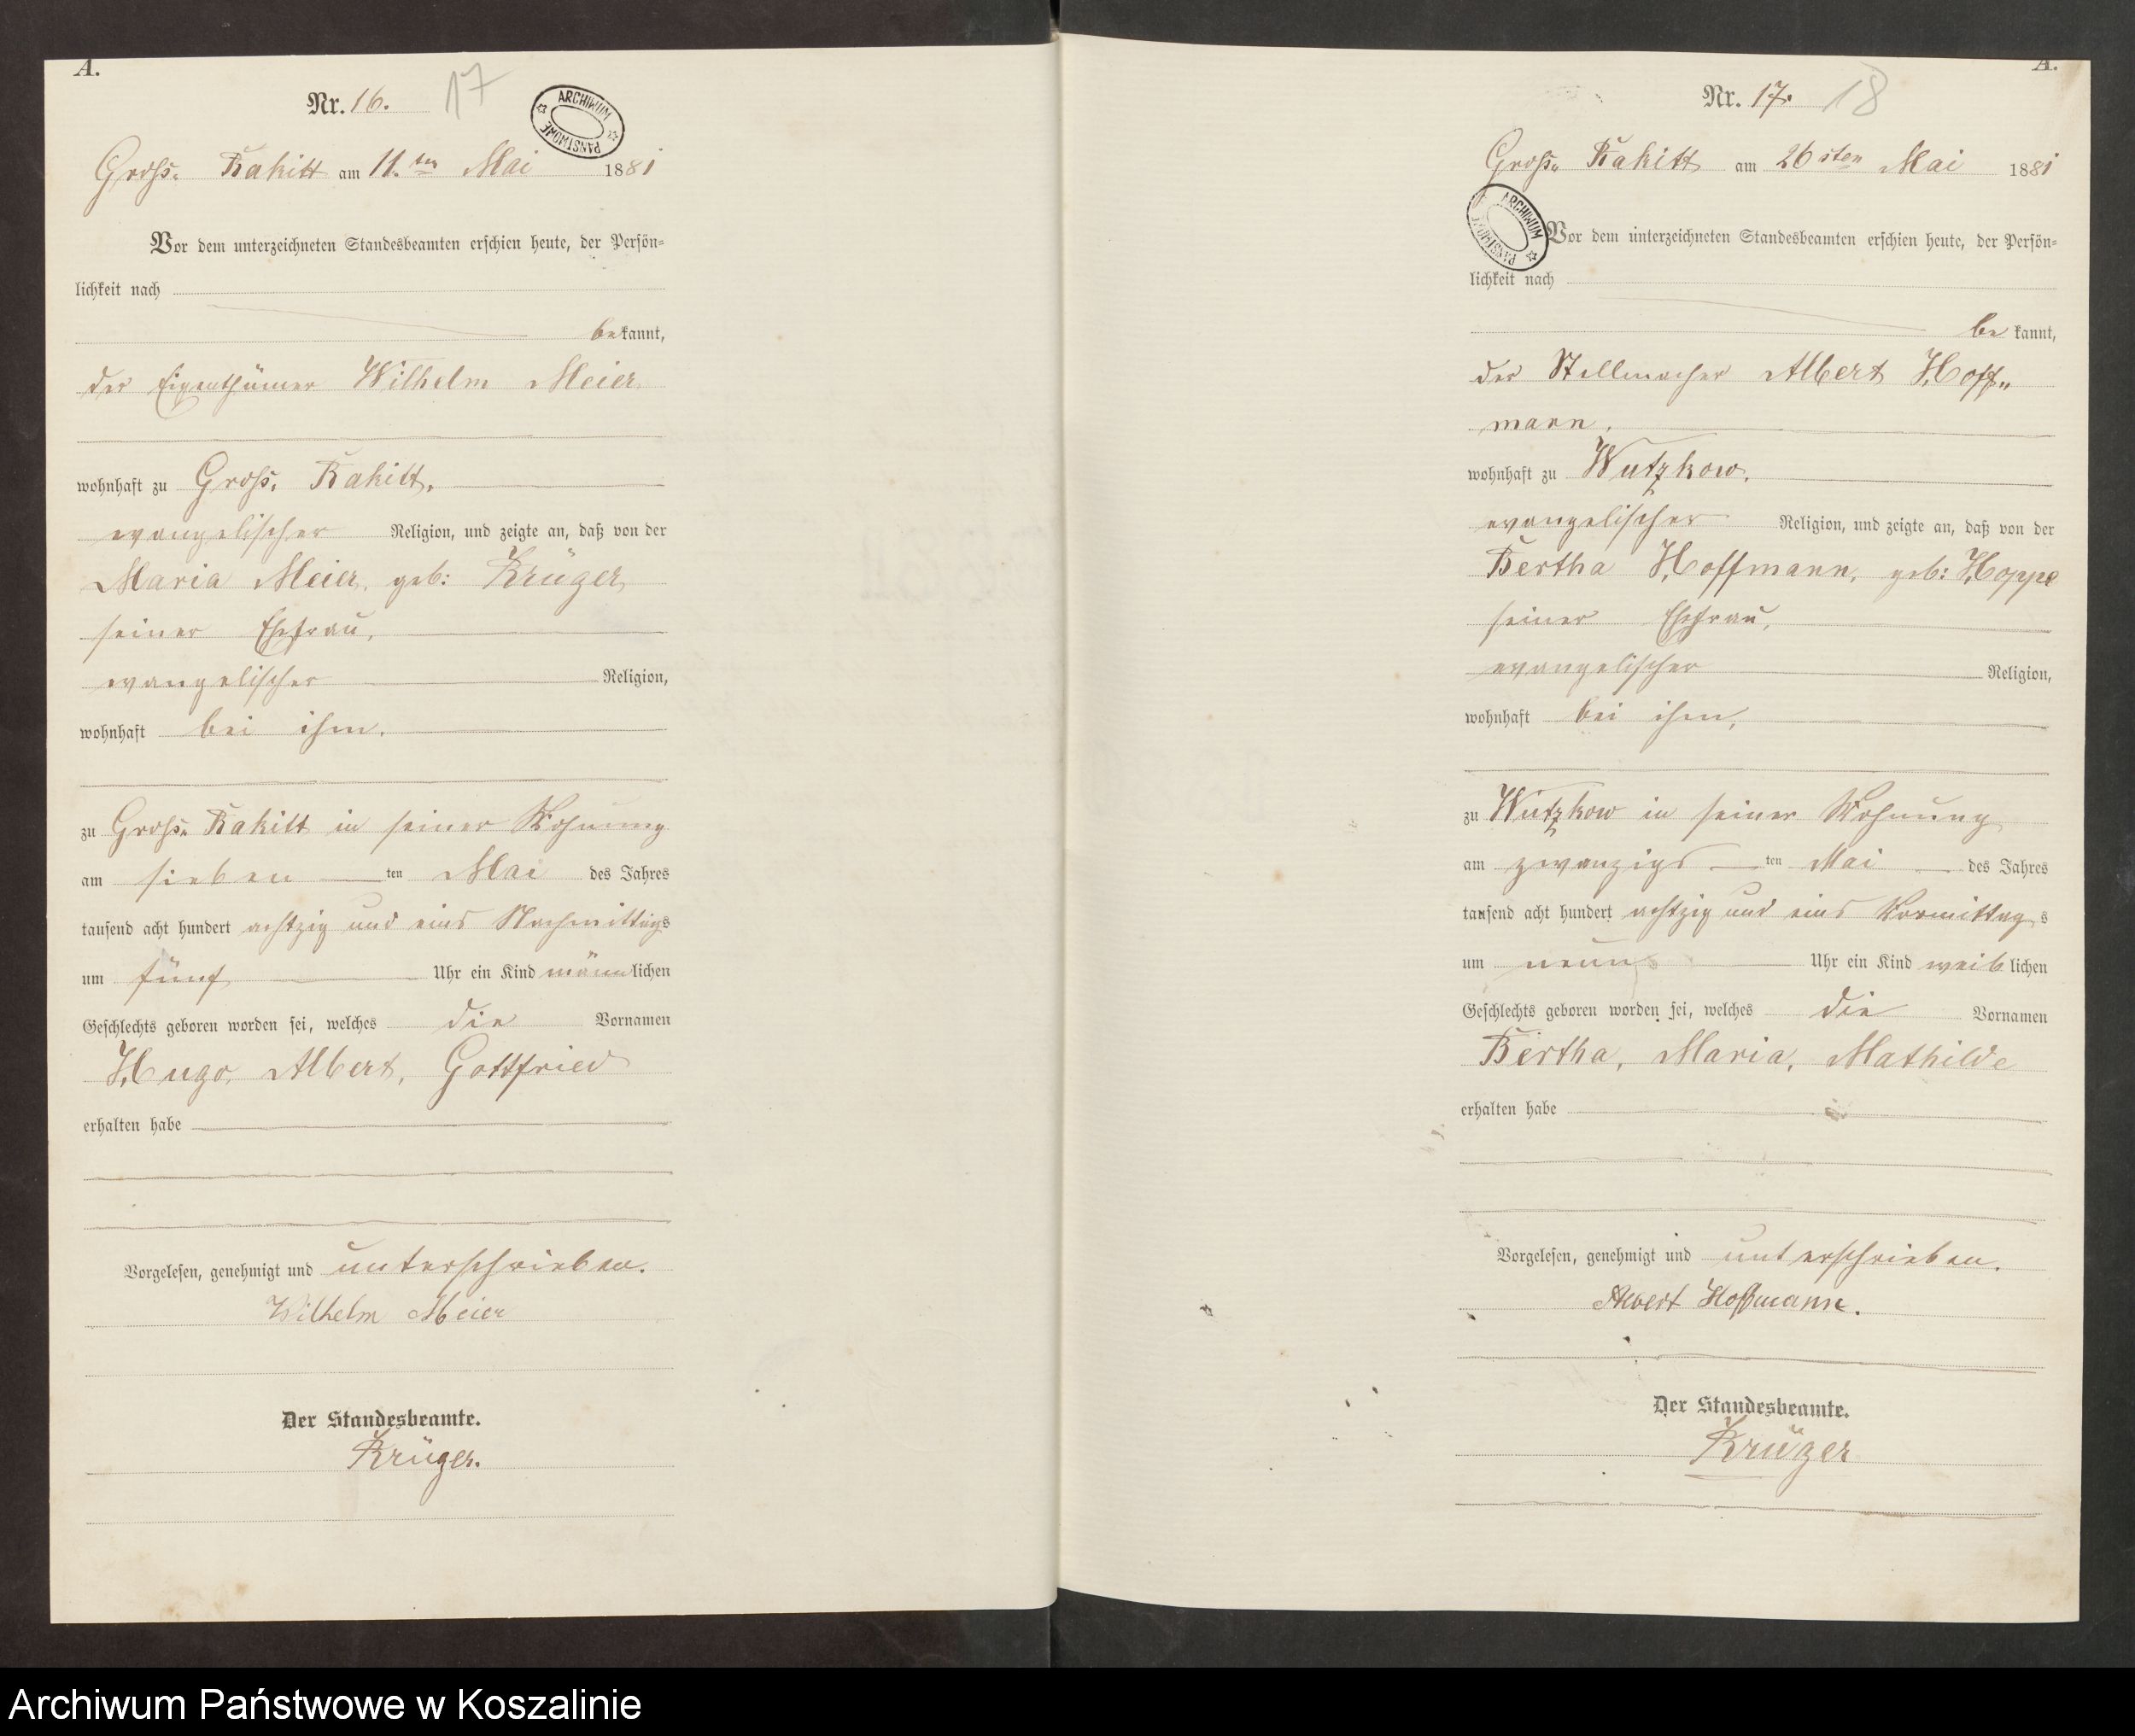 A.
Nr. 16. 17
ARCHIWUM PAŃSTWOWE
Groß. Rakitt am 11. ten Mai 1881
Vor dem unterzeichneten Standesbeamten erschien heute, der Persön=
lichkeit nach
bekannt,
der Eigenthümer Wilhelm Meier
wohnhaft zu Groß. Rakitt,
evangelischer Religion, und zeigte an, daß von der
Maria Meier, geb: Krüger,
seiner Ehefrau,
evangelischer Religion,
wohnhaft bei ihm,
zu Groß. Rakitt in seiner Wohnung
am sieben ten Mai des Jahres
tausend acht hundert achtzig und eins Nachmittags
um fünf Uhr ein Kind männlichen
Geschlechts geboren worden sei, welches die Vornamen
Hugo, Albert, Gottfried
erhalten habe
Vorgelesen, genehmigt und unterschrieben.
Wilhelm Meier
Der Standesbeamte.
Krüger.
A.
Nr. 17. 18
Groß. Rakitt am 26 sten Mai 1881
ARCHIWUM PAŃSTWOWE
Vor dem unterzeichneten Standesbeamten erschien heute, der Persön=
lichkeit nach
bekannt,
der Stellmacher Albert Hoff„
mann,
wohnhaft zu Wutzkow,
evangelischer Religion, und zeigte an, daß von der
Bertha Hoffmann, geb: Hoppe
seiner Ehefrau,
evangelischer Religion,
wohnhaft bei ihm,
zu Wutzkow in seiner Wohnung
am zwanzigs ten Mai des Jahres
tausend acht hundert achtzig und eins Vormittags
um neun Uhr ein Kind weiblichen
Geschlechts geboren worden sei, welches die Vornamen
Bertha, Maria, Mathilde
erhalten habe
Vorgelesen, genehmigt und unterschrieben.
Albert Hoffmann.
Der Standesbeamte.
Krüger
Archiwum Państwowe w Koszalinie